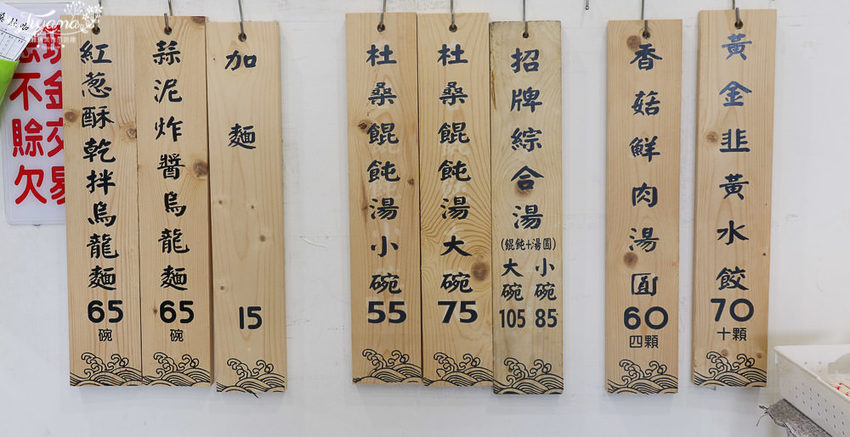 現金交易
恕不賒欠
黃金韭黃水餃
70
十顆
香菇鮮肉湯圓
60
四顆
招牌綜合湯
(餛飩+湯圓)
小碗 85
大碗 105
杜桑餛飩湯大碗
75
杜桑餛飩湯小碗
55
加麵
15
蒜泥炸醬烏龍麵
65
碗
紅蔥酥乾拌烏龍麵
65
碗